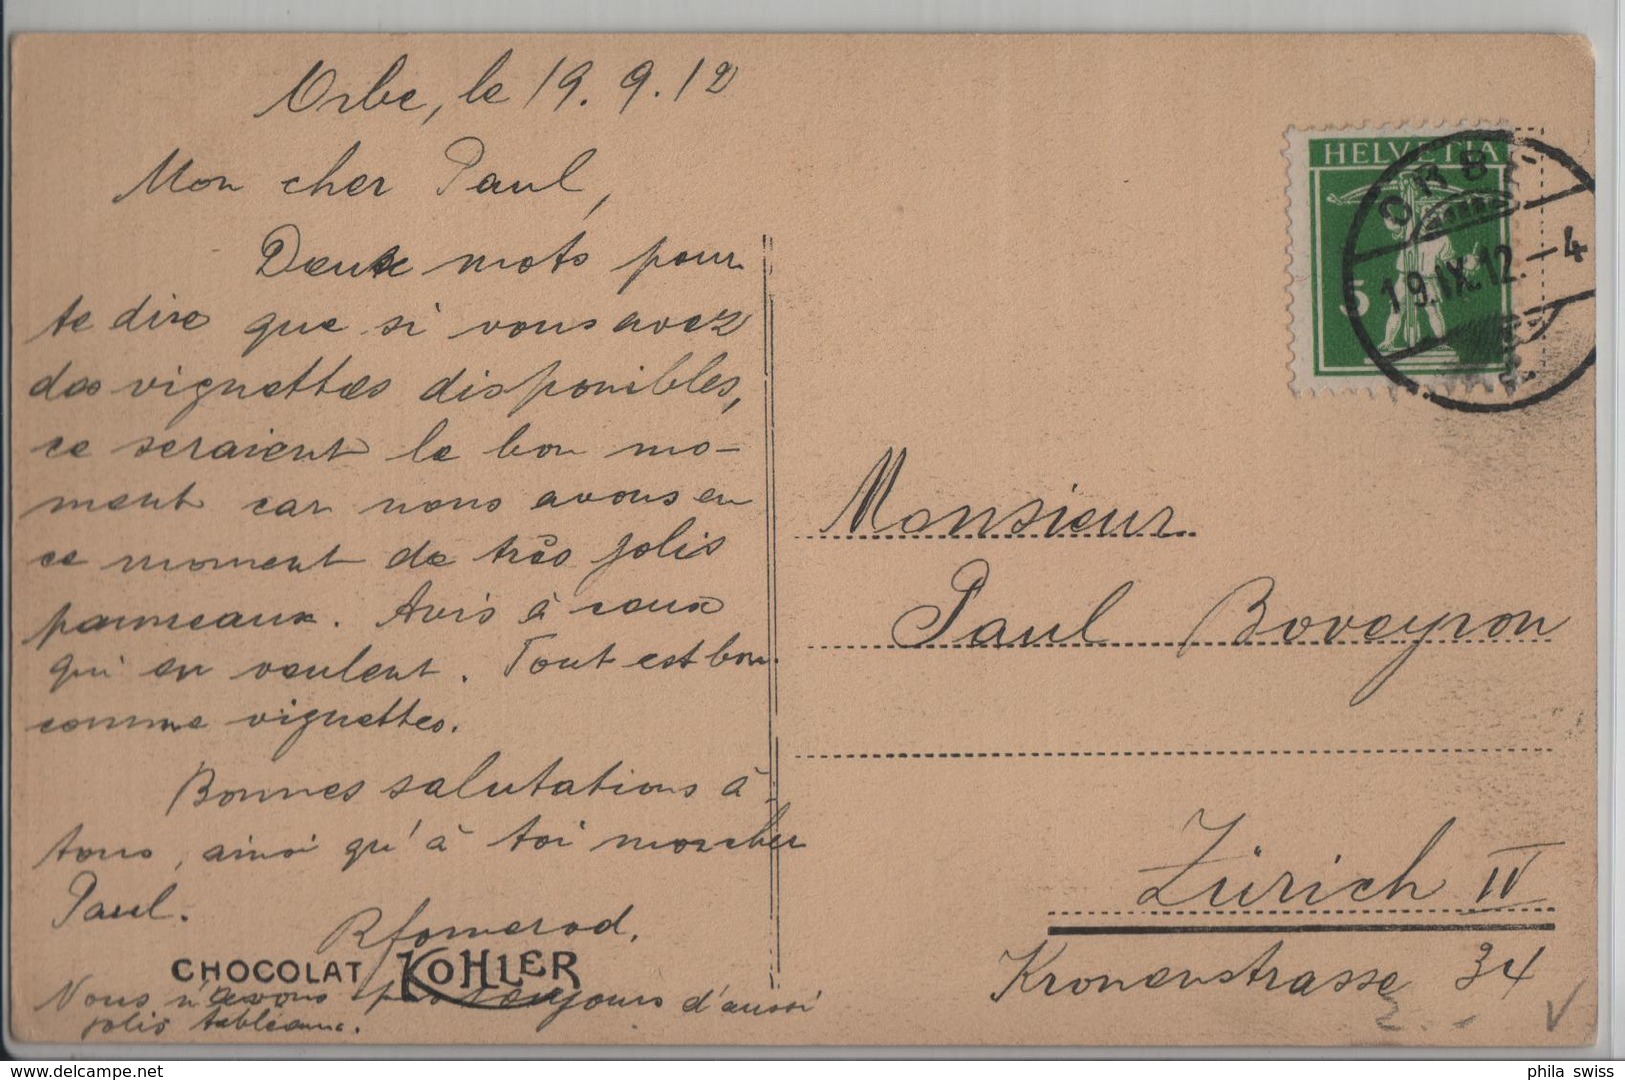 Orbe, le 19.9.12
Mon cher Paul,
Deux mots pour
te dire que si vous avez
des vignettes disponibles,
ce seraient le bon mo-
ment car nous avons en
ce moment de très jolis
panneaux. Avis à ceux
qui en veulent. Tout est bon
comme vignettes.
Bonnes salutations à
tous, ainsi qu'à toi mon cher
Paul.
CHOCOLAT KOHLER
Nous n'avons pas toujours d'aussi
jolis tableaux.
HELVETIA
5
ORBE
19.IX.12.-4
Monsieur
Paul Boveyron
Zürich IV
Kronenstrasse 34
phila swiss